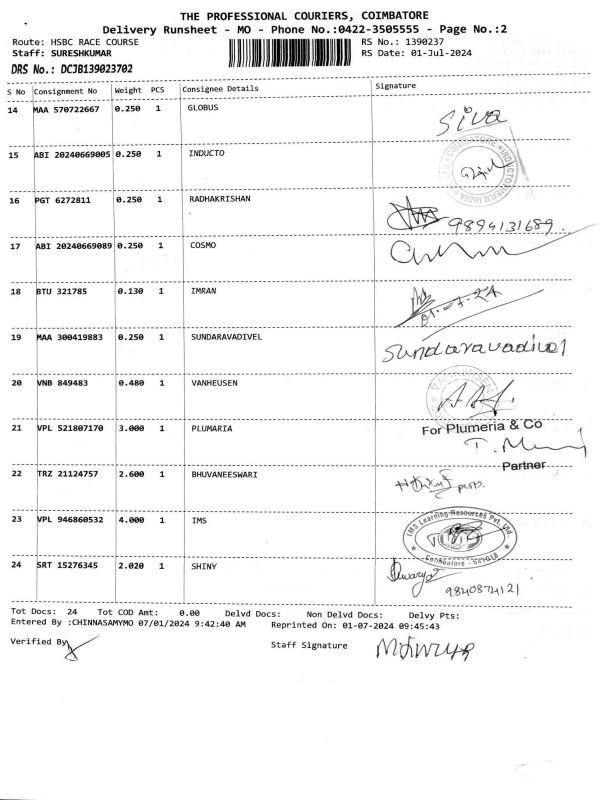 THE PROFESSIONAL COURIERS, COIMBATORE
Delivery Runsheet - MO - Phone No.:0422-3505555 - Page No.:2
Route: HSBC RACE COURSE RS No.: 1390237
Staff: SURESHKUMAR RS Date: 01-Jul-2024
DRS No.: DCJB139023702
S No Consignment No Weight PCS Consignee Details Signature
14 MAA 570722667 0.250 1 GLOBUS Siva
15 ABI 20240669005 0.250 1 INDUCTO
16 PGT 6272811 0.250 1 RADHAKRISHAN 9894131689
17 ABI 20240669089 0.250 1 COSMO
18 BTU 321785 0.130 1 IMRAN 01-07-24
19 MAA 300419883 0.250 1 SUNDARAVADIVEL Sundaravadivel
20 VNB 849483 0.480 1 VANHEUSEN
21 VPL 521807170 3.000 1 PLUMARIA For Plumeria & Co
Partner
22 TRZ 21124757 2.600 1 BHUVANEESWARI
23 VPL 946860532 4.000 1 IMS IMS Learning Resources Pvt. Ltd. Coimbatore
24 SRT 15276345 2.020 1 SHINY 9840874121
Tot Docs: 24 Tot COD Amt: 0.00 Delvd Docs: Non Delvd Docs: Delvy Pts:
Entered By :CHINNASAMYMO 07/01/2024 9:42:40 AM Reprinted On: 01-07-2024 09:45:43
Verified By Staff Signature